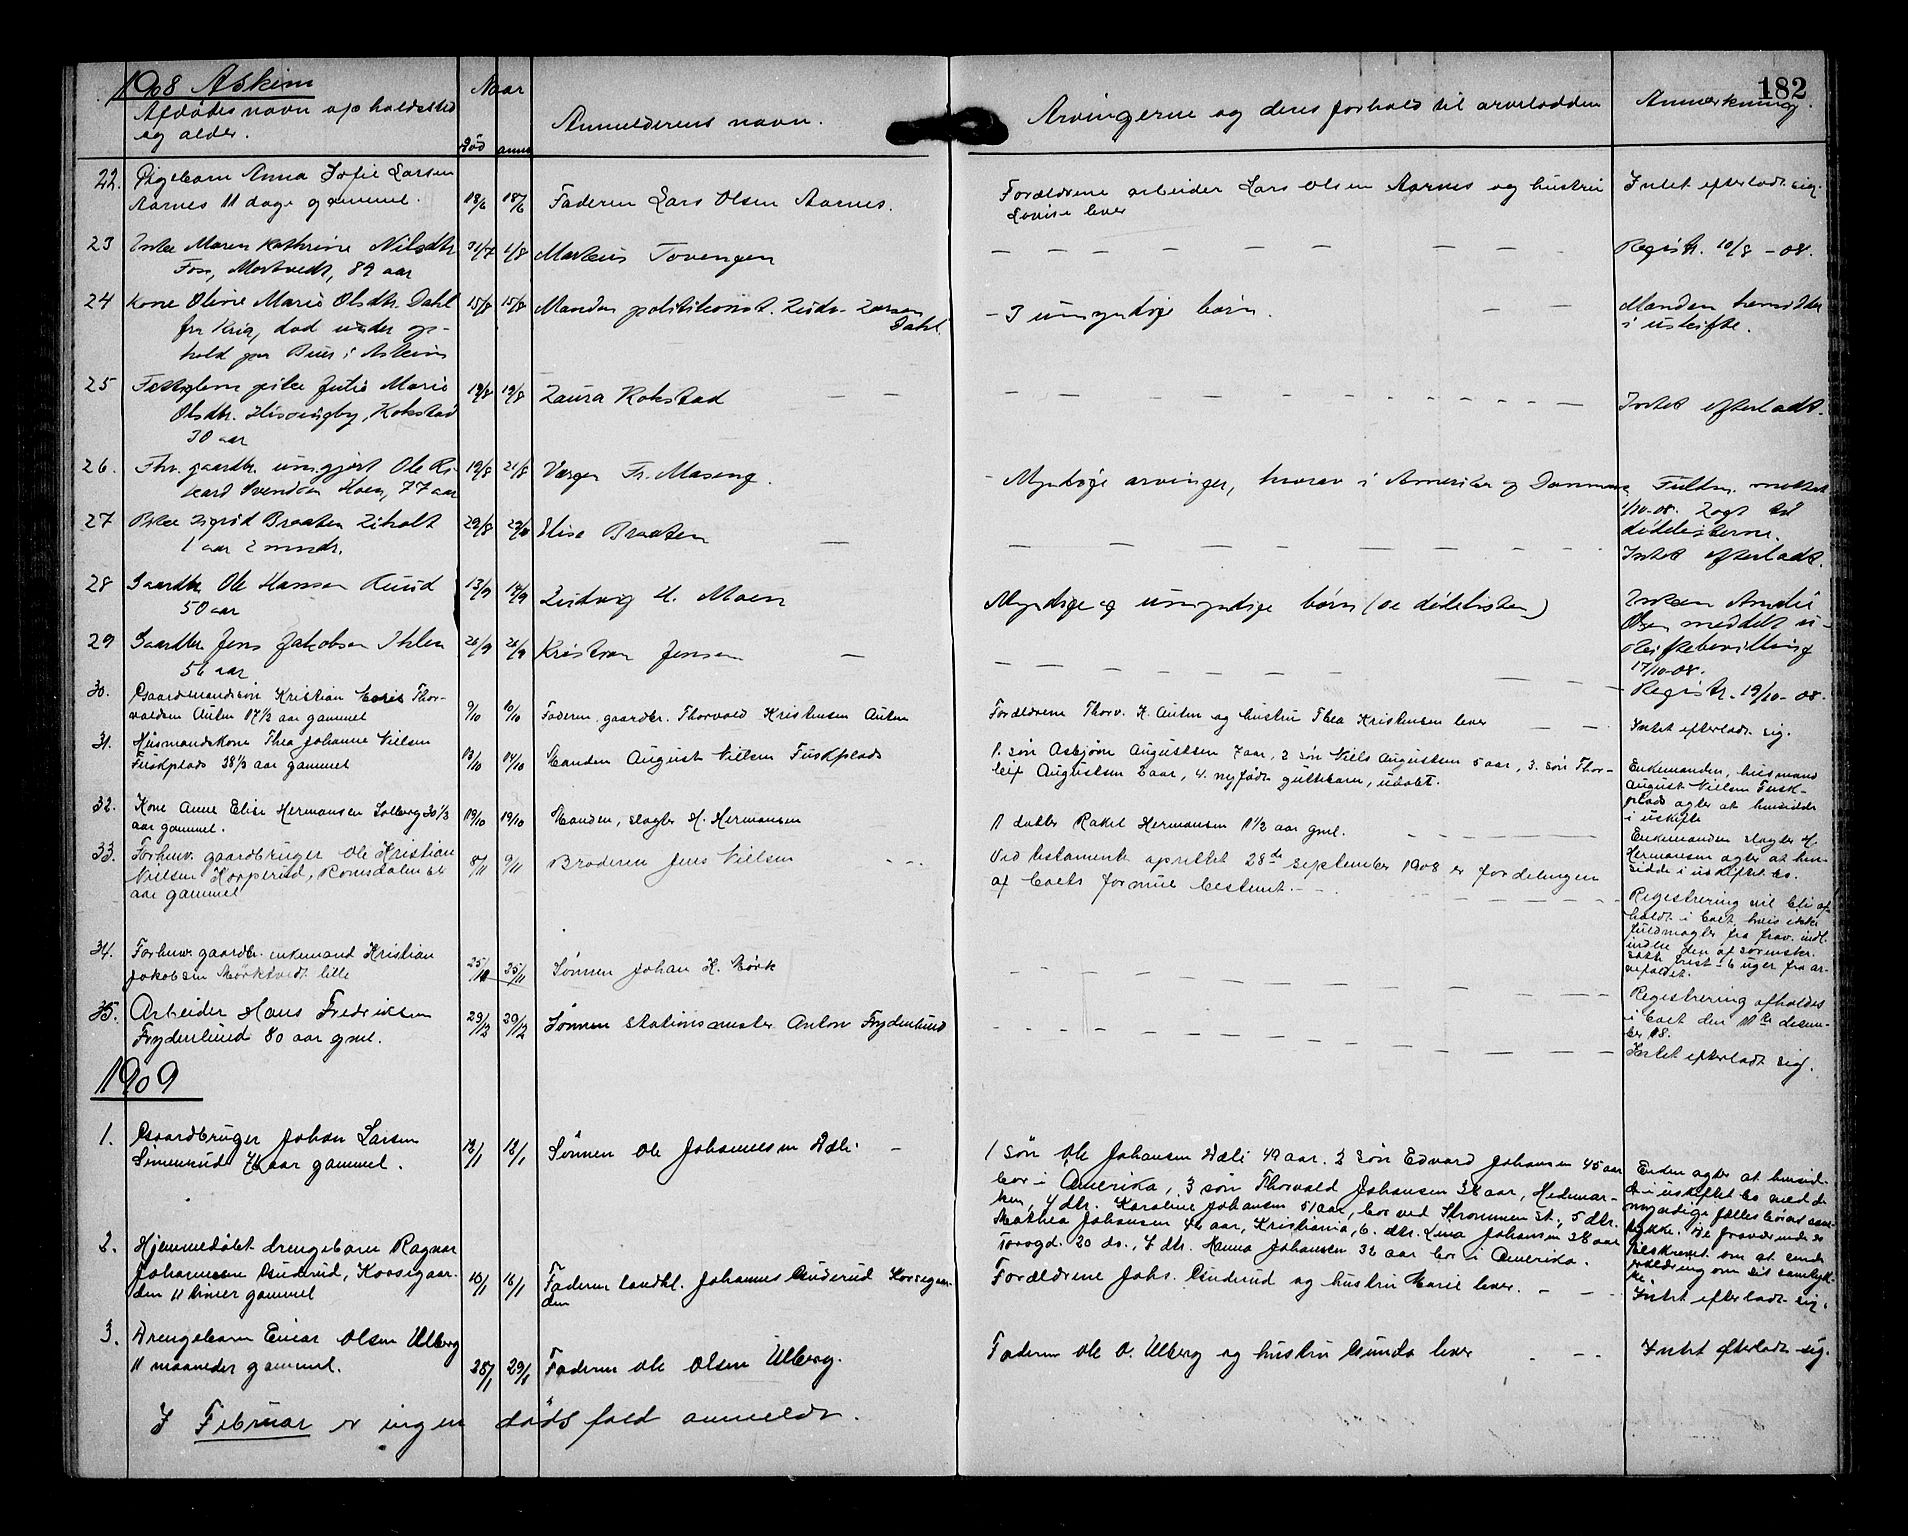 182
1908 Askim
Afdødes navn opholdssted
og alder.
Naar
Død anm.
Anmelderens navn.
Arvingerne og deres forhold til arveladden
Anmerkning.
22. Pigebarn Anna Sofie Larsen
Aarnes 11 dage gammel.
18/6 18/6
Faderen Lars Olsen Aarnes.
Forældrene arbeider Lars Olsen Aarnes og hustru
Lovise lever
Intet efterladt sig.
23 Enke Maren Kathrine Nilsdtr
Foss, Mortvedt, 89 aar
31/7 1/8
Markus Tovengen
Registr. 10/8 - 08.
24 Kone Oline Marie Olsdtr. Dahl
fra Kria, død under op-
hold paa Buer i Askim
15/8 15/8
Manden politikonst. Ludv. Larsen
Dahl.
- 3 umyndige børn.
Manden hensidder
i uskifte.
25 Fattiglem pike Julie Marie
Olsdtr. Kokstad
30 aar
19/8 19/8
Laura Kokstad
Intet efterladt.
26. Fhv. gaardbr. umgjort Ole Ri-
kard Svendsen Moen, 77 aar
19/8 21/8
Verger Fr. Maseng.
- Myndige arvinger, hvorav i Amerika og Danmark
Fuldm. mottat
1/10-08. Lagt til
dødslisterne.
27 Pike Sigrid Braaten
1 aar 2 mndr.
29/8
Elise Braaten
Intet efterladt.
28 Gaardbr. Ole Hansen Ruud
50 aar
13/9 14/9
Ludvig H. Moen
Myndige og umyndige børn (se dødslisten)
Enken Amalie
Olsen meddelt u-
skiftebevilling
17/10-08.
29 Gaardbr. Jens Jakobsen Ihlen
56 aar
26/9 26/9
Kristian Jensen
Registr. 19/10-08.
30. Gaardmandssøn Kristian Thor-
valdsen Auten 17½ aar gammel
9/10 10/10
Faderen gaardbr. Thorvald Kristensen Auten
Forældrene Thorv. K. Auten og hustru Thea Kristensen lever
Intet efterladt sig.
31. Husmandskone Thea Johanne Nielsen
Fuskplads 38⅓ aar gammel
13/10 14/10
Manden August Nielsen Fuskplads
1. søn Asbjørn Augustsen 7 aar, 2 søn Niels Augustsen 5 aar, 3. søn Thor-
leif Augustsen 2 aar, 4. nyfødt guttebarn, udøbt.
Enkemanden, husmand
August Nielsen Fusk-
plads agter at hensidde
i uskifte
32. Kone Anne Elise Hermansen Solberg 30⅓
aar gammel.
19/10 19/10
Manden, slagter H. Hermansen
1 datter Rakel Hermansen 1½ aar gml.
Enkemanden slagter H.
Hermansen agter at hen-
sidde i uskiftet bo.
33. Forhenv. gaardbruger Ole Kristian
Nielsen Korperud, Romsdalen
aar gammel
8/11 9/11
Broderen Jens Nielsen
Ved testamente oprettet 28de september 1908 er fordelingen
af boets formue bestemt.
Registrering vil bli af-
holdt i boet, hvis ikke
fuldmagter fra frav. indl.
inden den af sorenskr.
satte frist - 6 uger fra ar-
vefaldet.
34. Forhenv. gaardbr. enkemand Kristian
Jakobsen Mørktvedt lille
25/11 25/11
Sønnen Johan K. Mørk
Registrering afholdes
i boet den 11te desem-
ber 08.
35. Arbeider Hans Fredriksen
Frydenlund 80 aar gml.
29/12 29/12
Sønnen stationsmester Anton Frydenlund
Intet efterladt sig.
1909
1. Gaardbruger Johan Larsen
Simenrud 76 aar gammel.
12/1 13/1
Sønnen Ole Johannesen Dæli
1 søn Ole Johansen Dæli 49 aar. 2 søn Edvard Johansen 45 aar
bor i Amerika, 3 søn Thorvald Johansen 38 aar, Hedemar-
ken, 4 dtr. Karoline Johansen 51 aar, bor ved Strømmen st., 5 dtr.
Mathea Johansen 46 aar, Kristiania, 6. dtr. Lina Johansen 28 aar
Torsgd. 20 do., 7 dtr. Hanna Johansen 32 aar bor i Amerika.
Enken agter at hensid-
de i uskiftet bo med de
myndige fællesbørns sam-
tykke. De fraværende er
tilskrevet om at sende
erklæring om sit samtyk-
ke.
2. Hjemmedøbt drengebarn Ragnar
Johannesen Guderud, Korsegaar-
den 11 timer gammel
15/1 16/1
Faderen landhl. Johannes Guderud Korsegaar-
den
Forældrene Johs. Guderud og hustru Marie lever.
Intet efterladt sig.
3. Drengebarn Einar Olsen Ulberg
11 maaneder gammel.
28/1 29/1
Faderen Ole Olsen Ulberg.
Faderen Ole O. Ulberg og hustru Gunda lever
Intet efterladt sig.
I Februar er ingen dødsfald anmeldt.